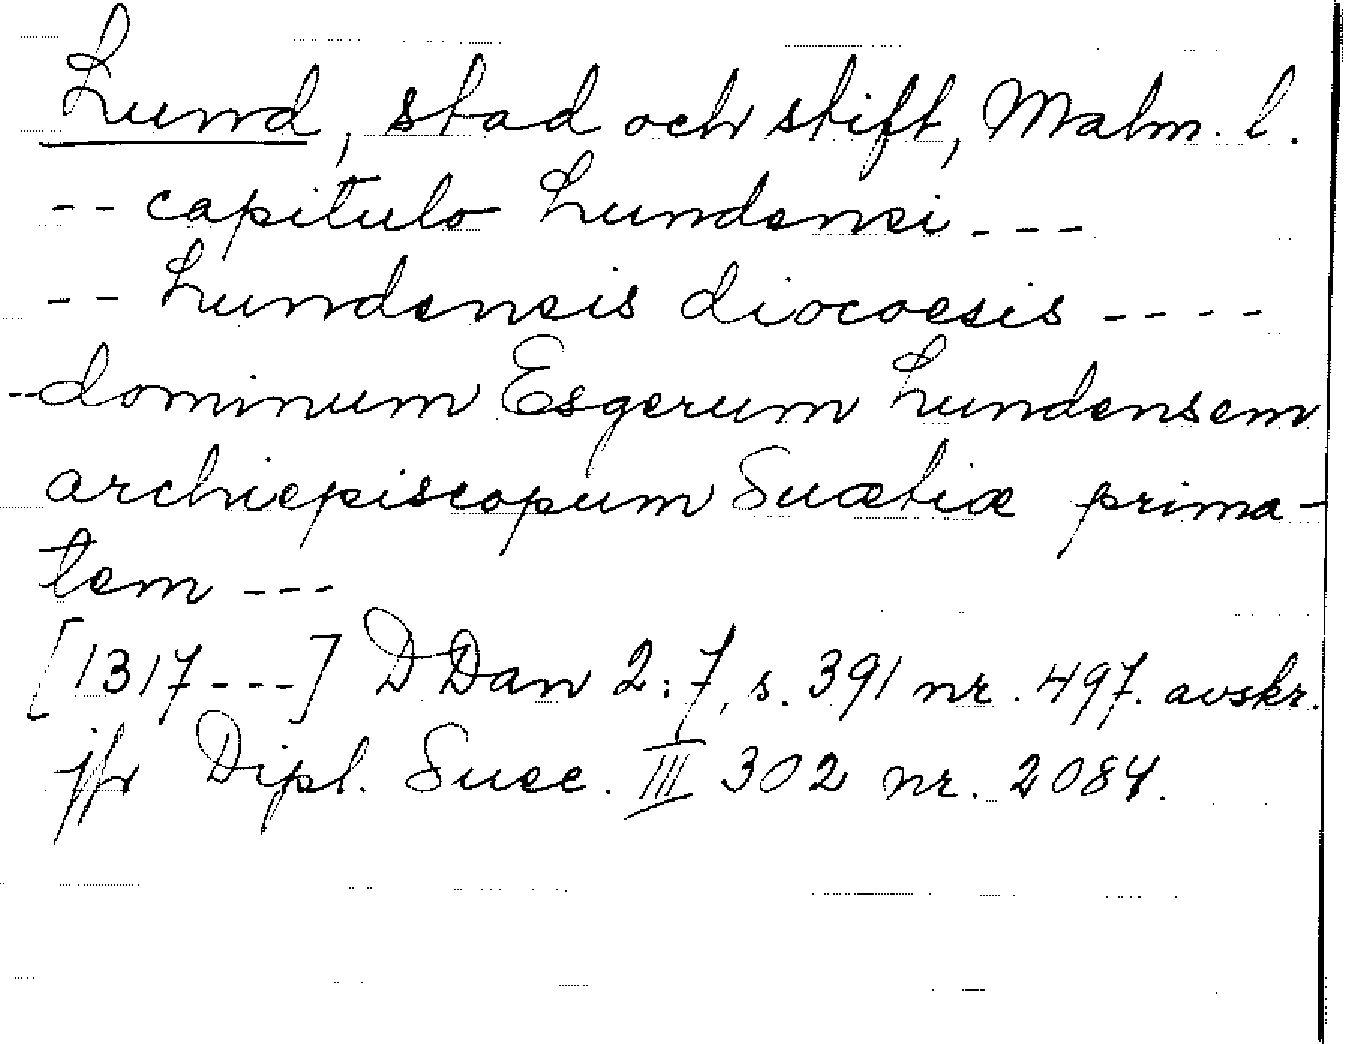 Lund, stad och stift, Malm. l.
-- capitulo Lundensi ---
-- Lundensis diocoesis ----
- dominum Esgerum Lundensem
archiepiscopum Suætiæ prima-
tem ---
[1317 ---] D Dan 2:7, s. 391 nr. 497. avskr.
jfr Dipl. Suec. III 302 nr. 2084.